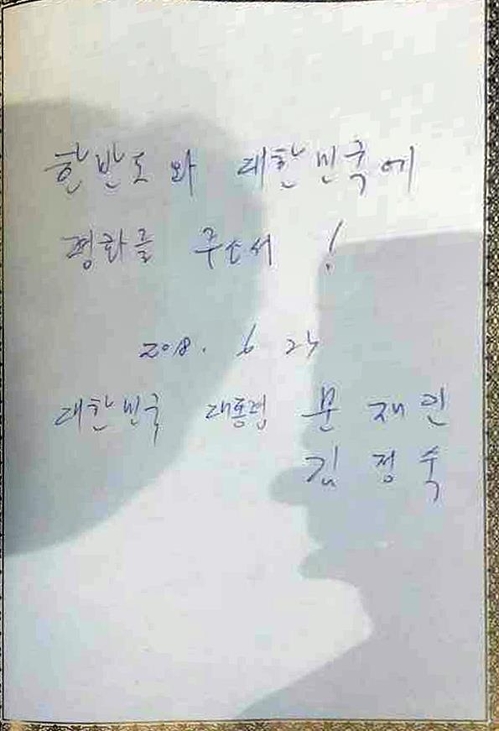 한반도와 대한민국에
평화를 주소서 !
2018. 6 23
대한민국 대통령 문 재 인
김 정 숙